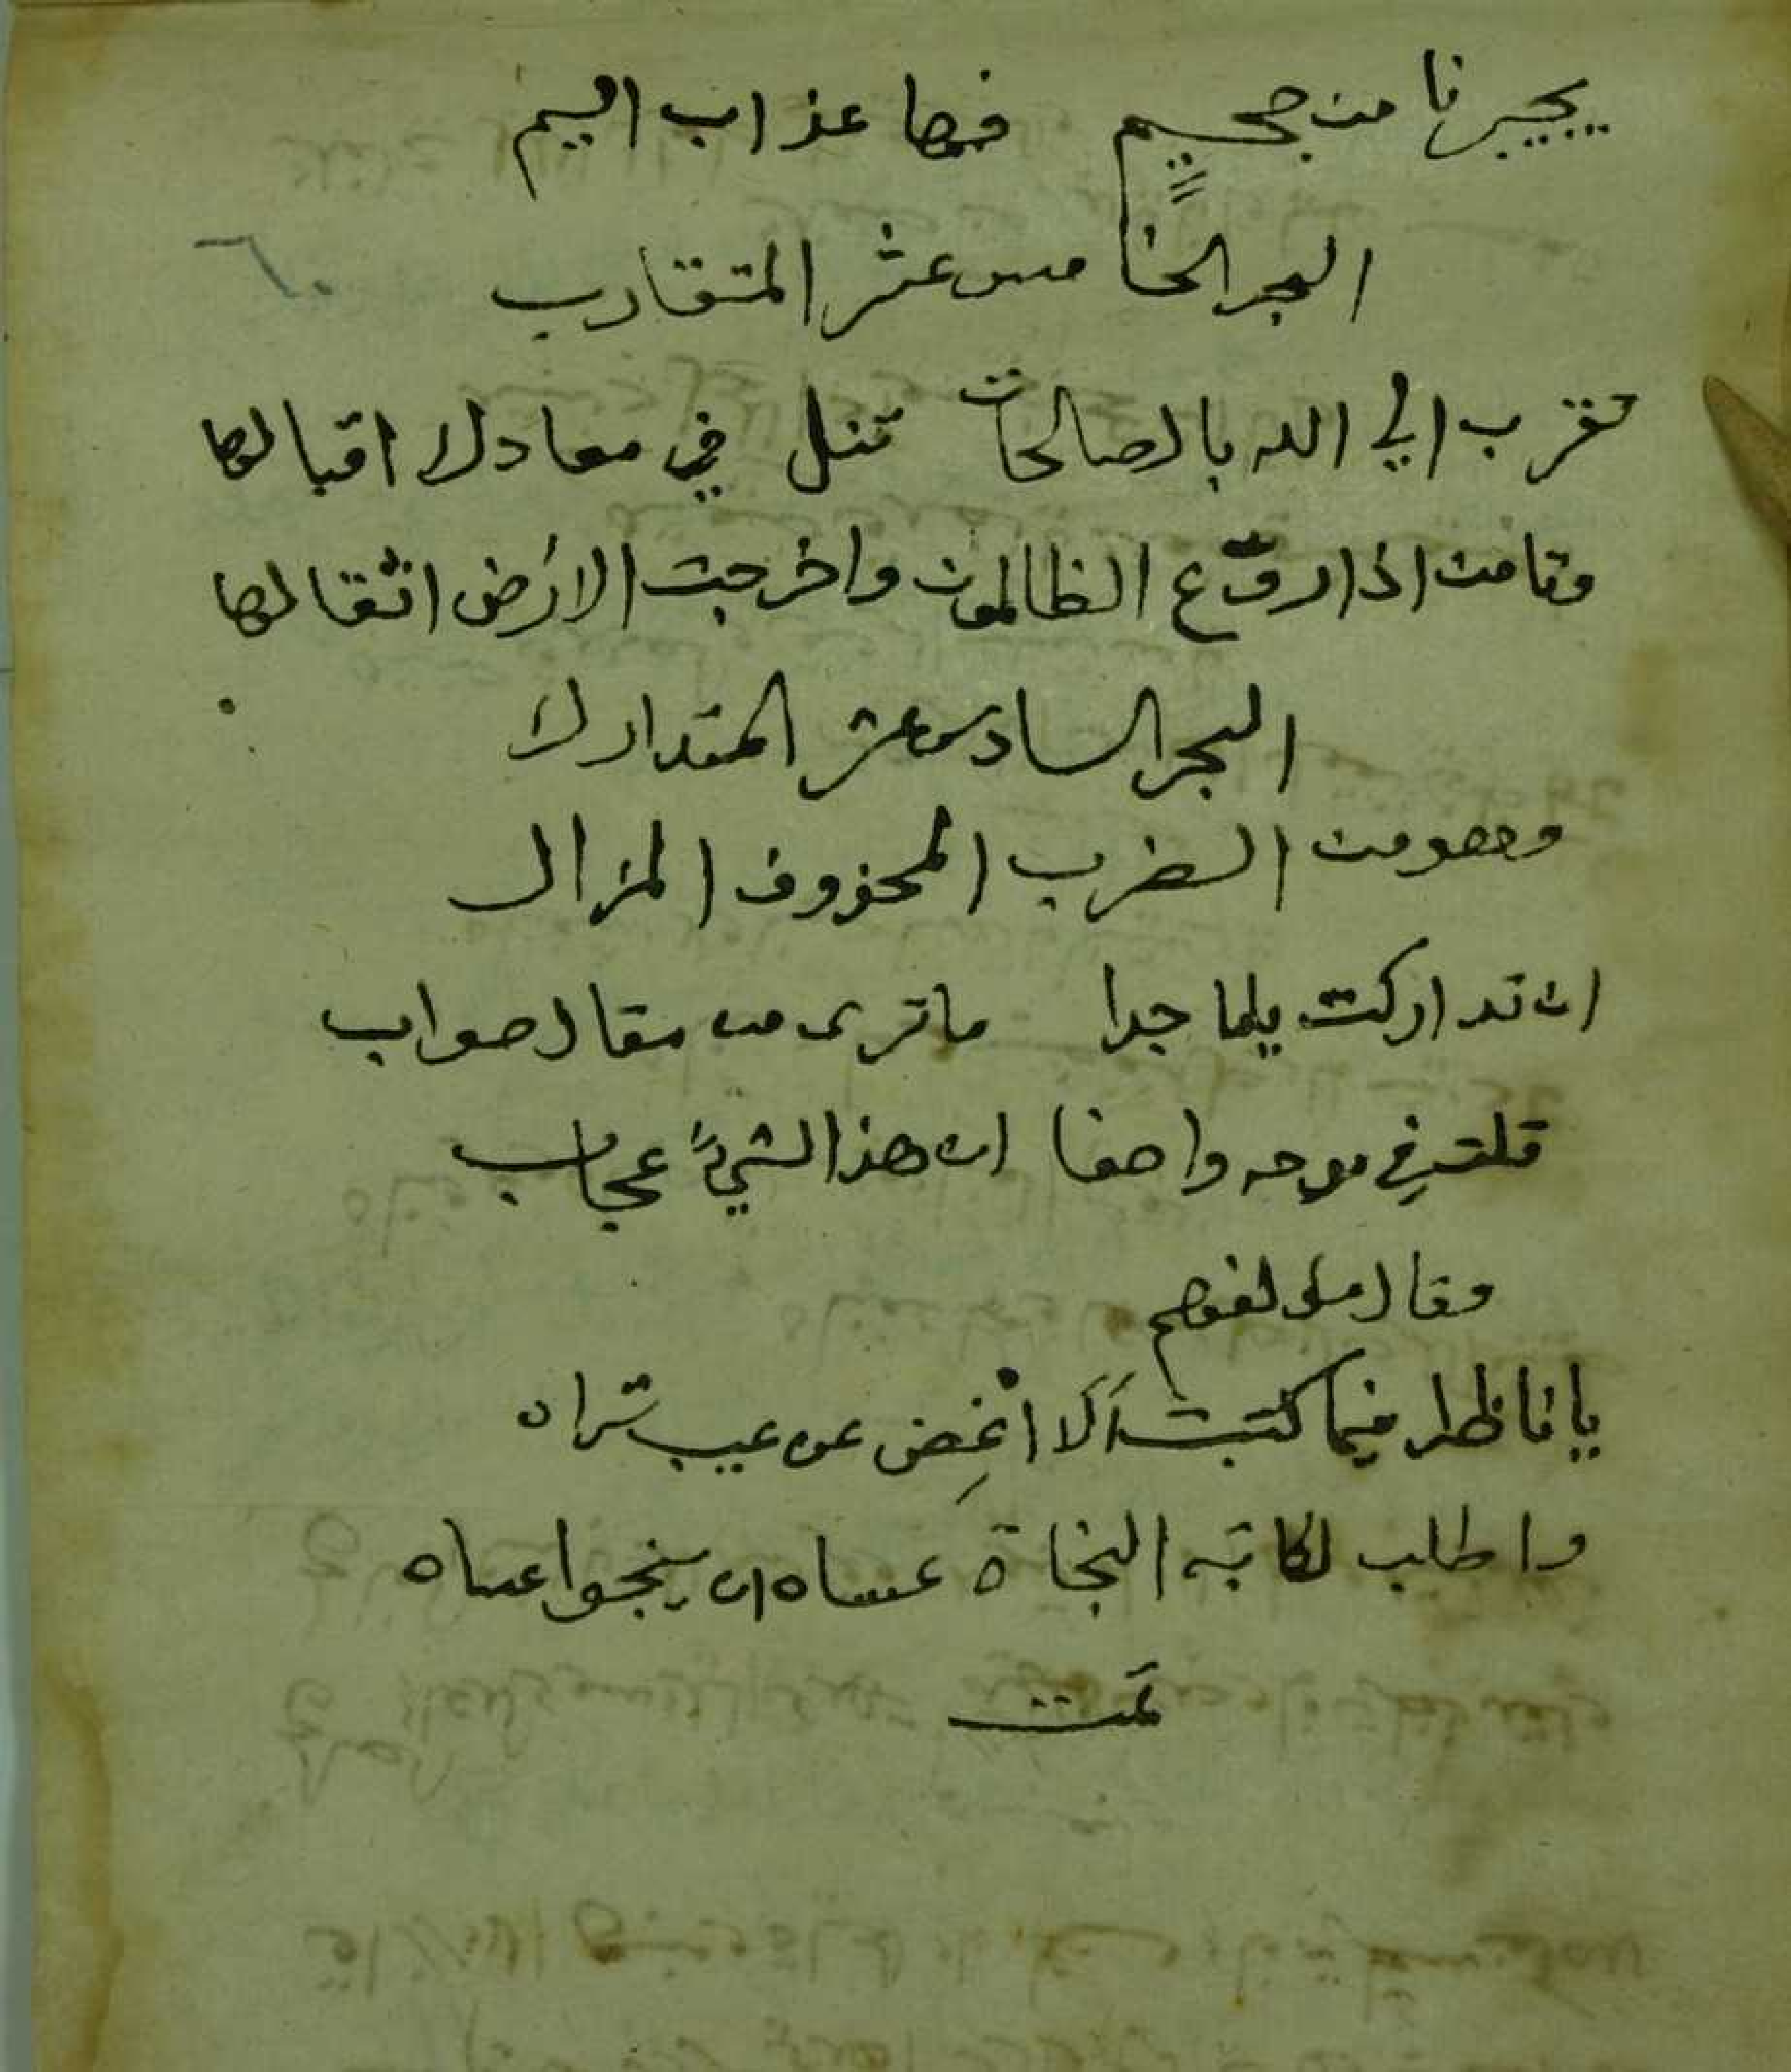 يجيرنا من جحيم فيها عذاب اليم
البحر الخامس عشر المتقارب
تقرب الي الله بالصالحات تنل في معادك اقبالها
وتامن اذا روّع الظالمون واخرجت الارض اثقالها
البحر السادس عشر المتدارك
وهو من الضرب المحذوف المزال
ان تداركت يلما جرا ما ترى من مقال صواب
قلت في واصفا ان هذا الشيءً عجاب
وقال بعضهم
يا ناظرا فيما كتبت اَلَا اغْمِض عن عيب تراه
واطلب لكاتبه النجاة عساه ان ينجوا عساه
تمت